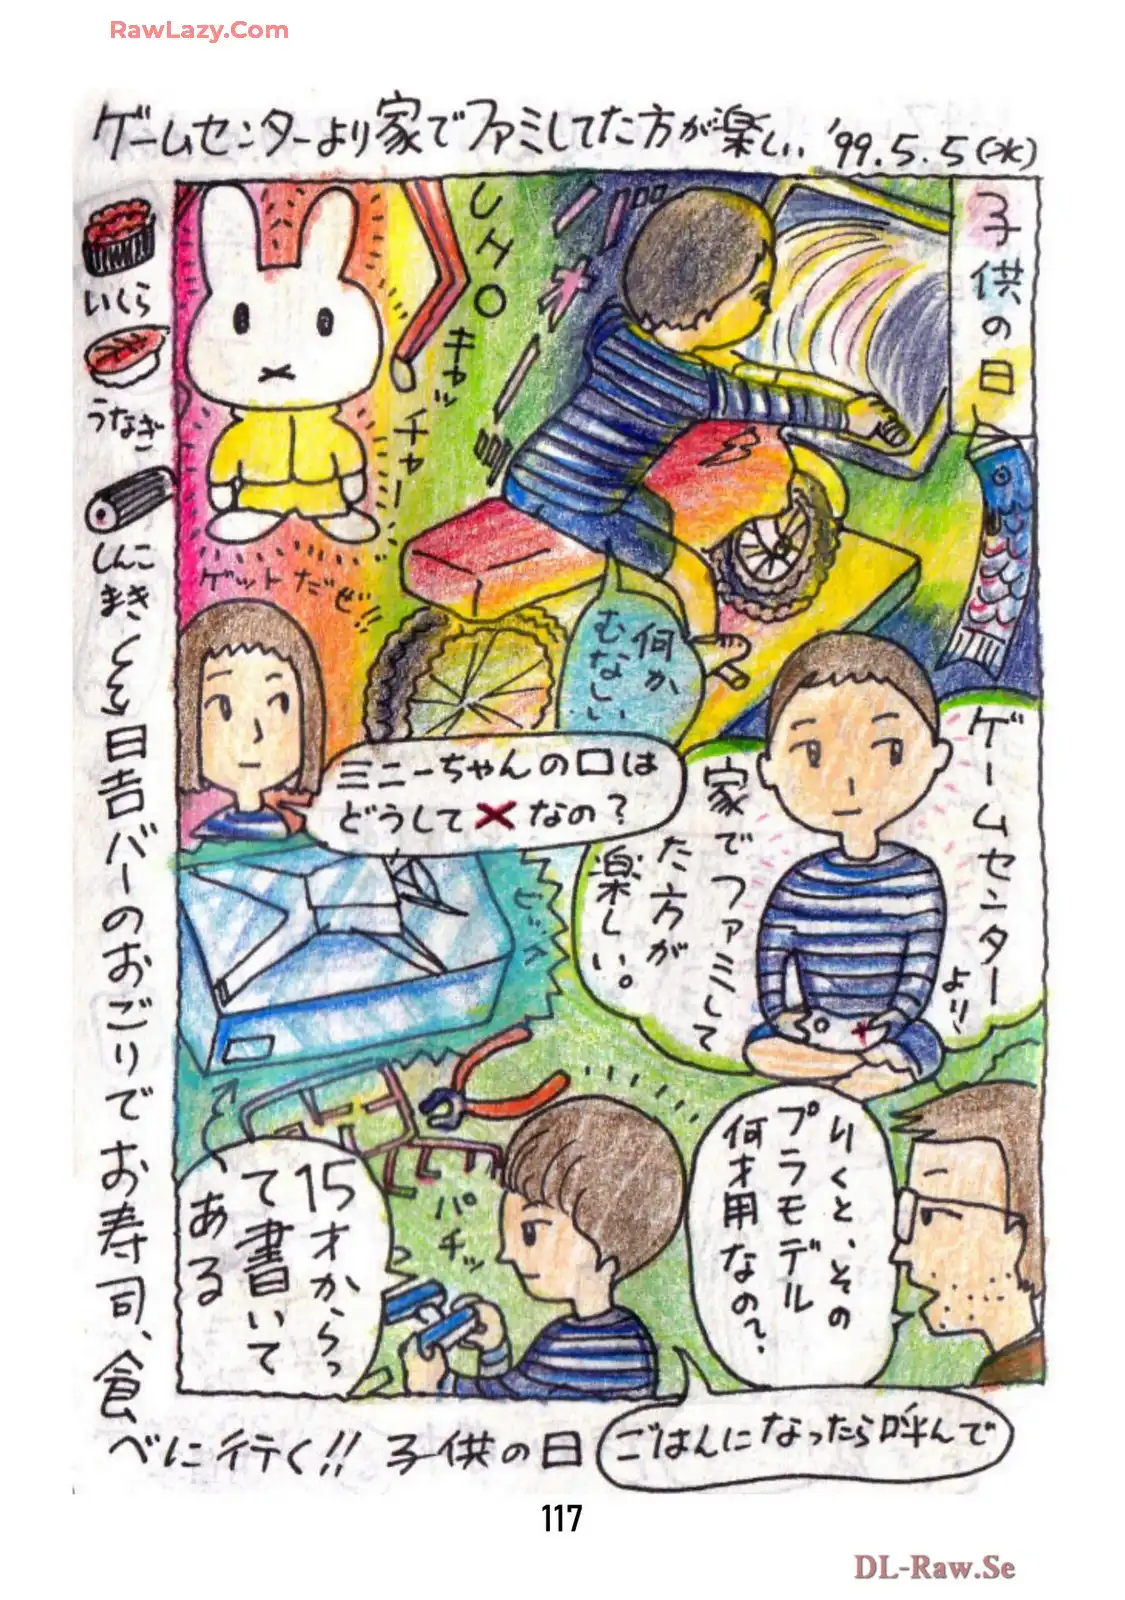 RawLazy.Com
ゲームセンターより家でファミしてた方が楽しい '99.5.5(水)
子供の日
UFOキャッチャー
ゲットだぜ!!
何か
むなしい
ミニーちゃんの口は
どうして×なの?
ゲームセンターより、
家でファミして
た方が
楽しい。
りくと、その
プラモデル
何才用なの?
15才からっ
て書いて
ある
パチッ
ごはんになったら呼んで
いくら
うなぎ
しんこ
まき
日吉バーのおごりでお寿司、食
べに行く!! 子供の日
117
DL-Raw.Se